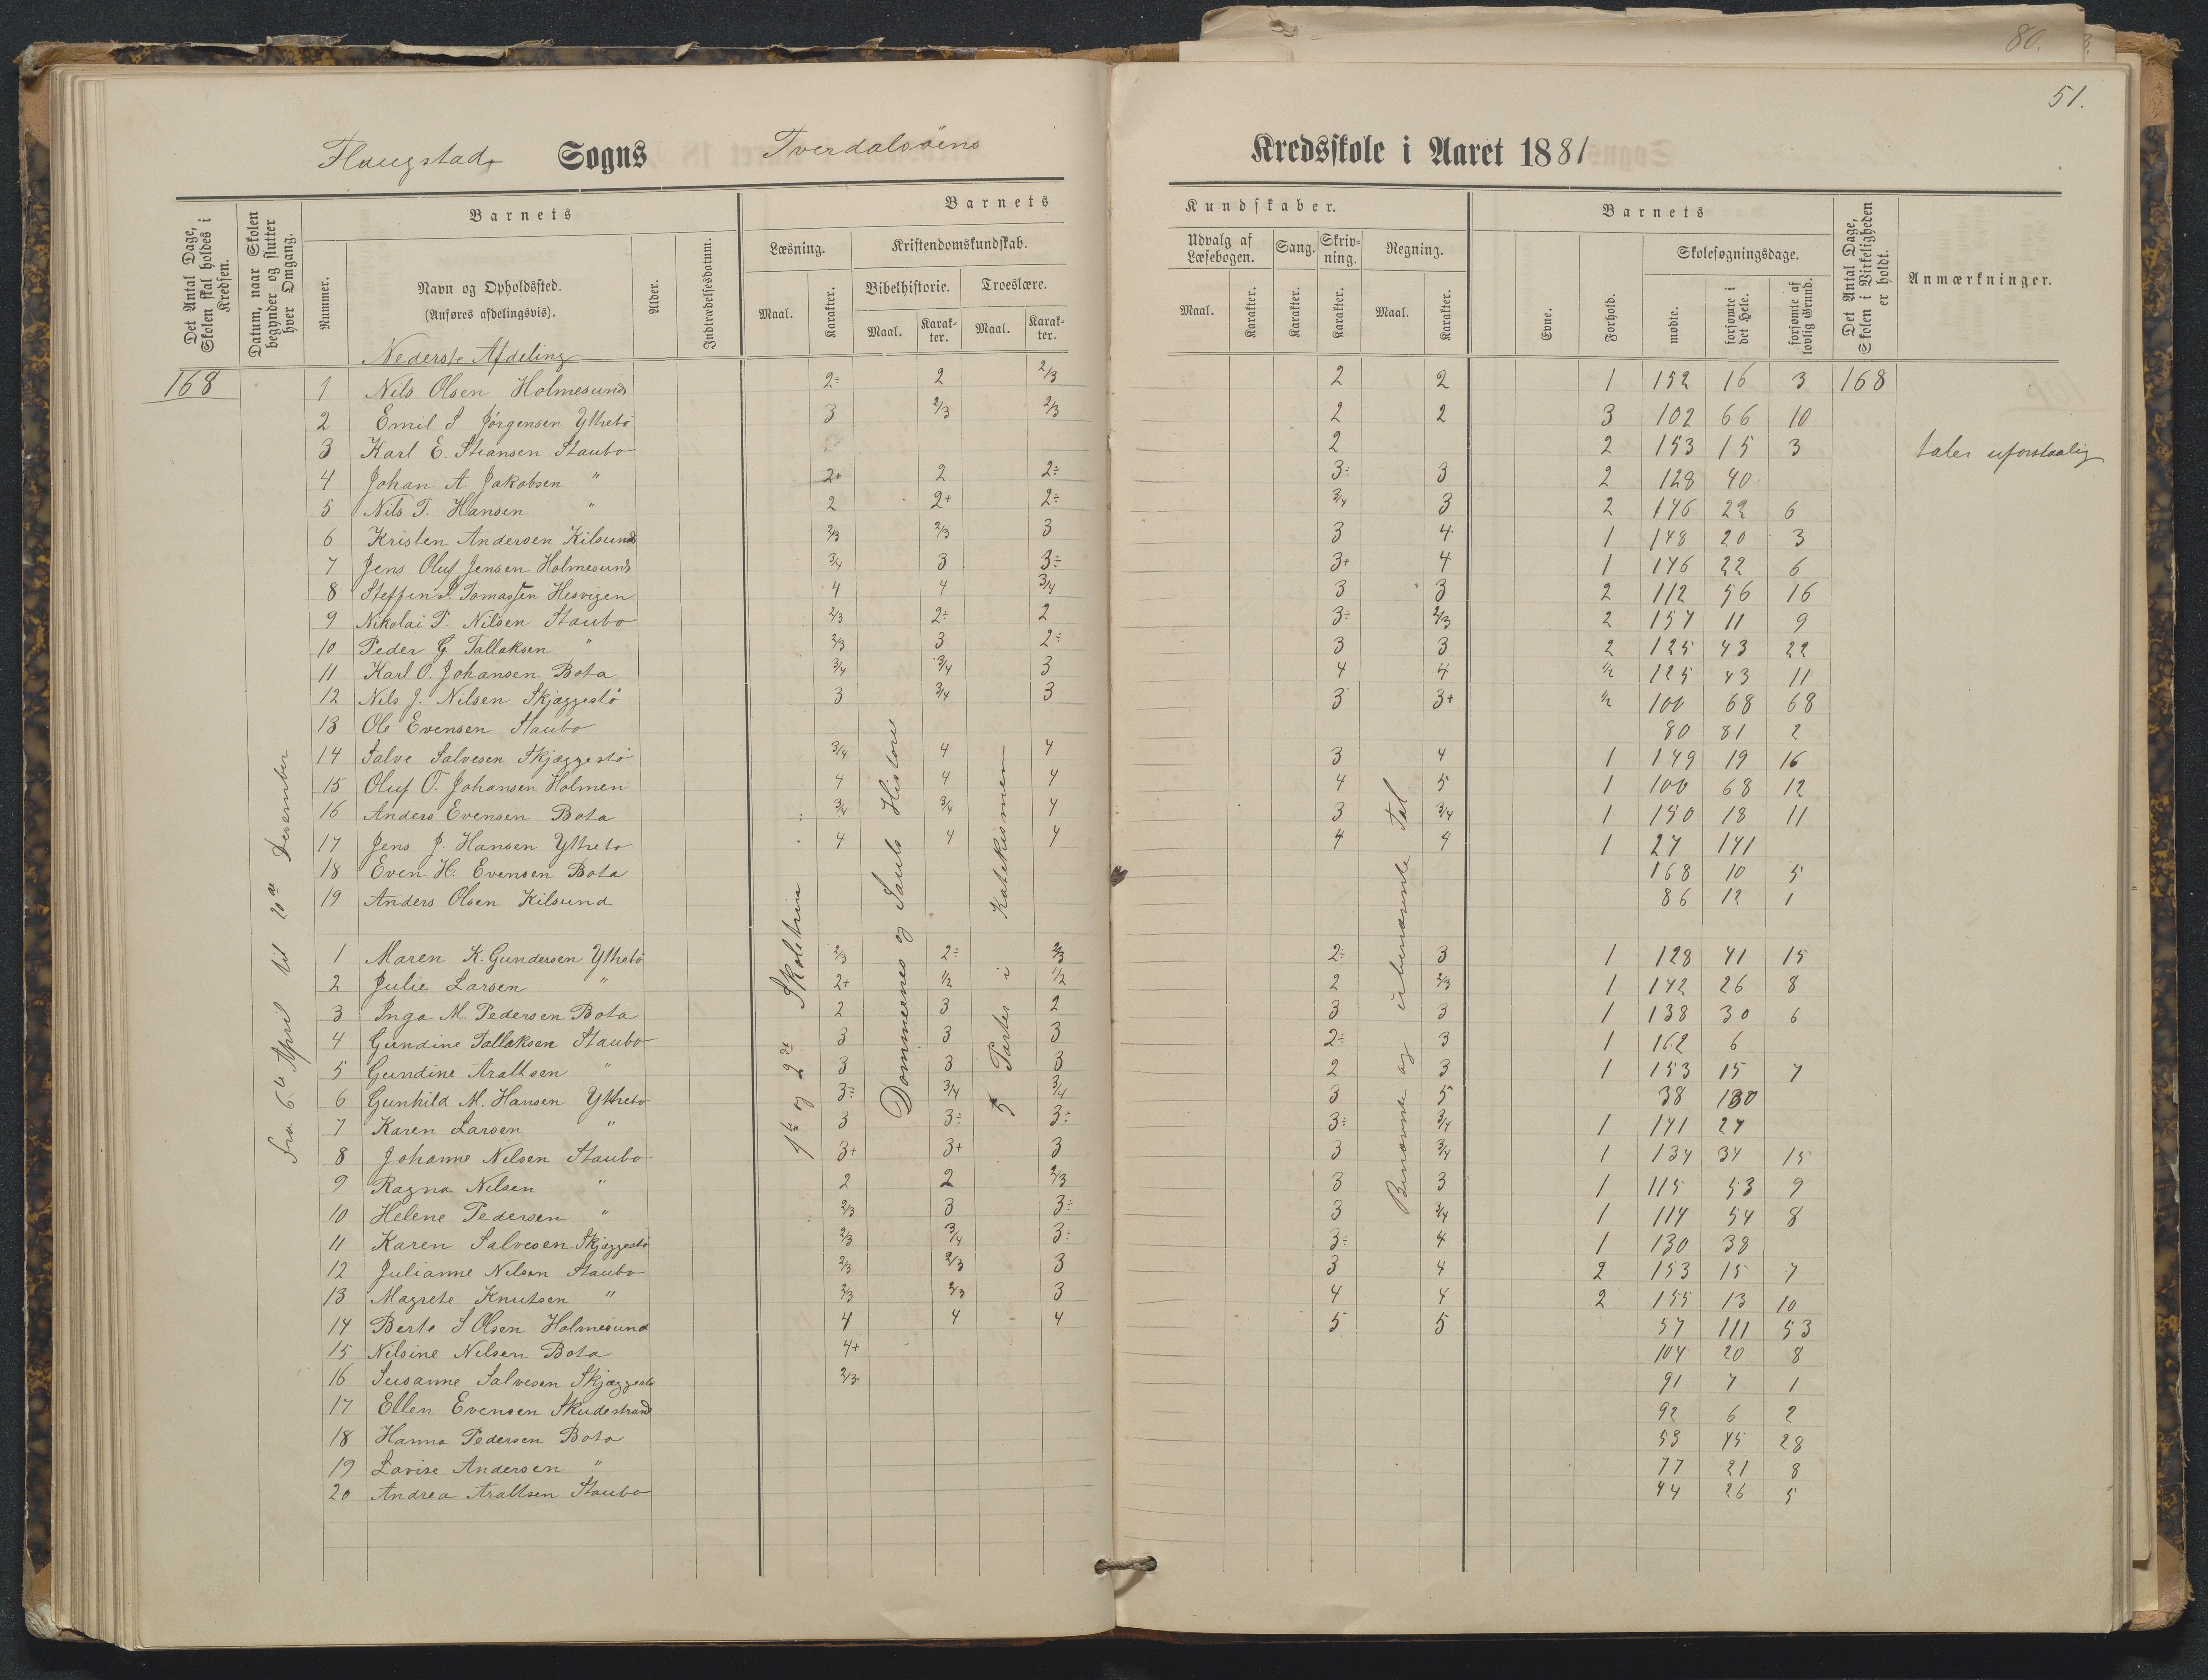 80.
51.
Flaugstads Sogns Tverdalsøens Kredsskole i Aaret 1881
Det Antal Dage, Skolen skal holdes i Kredsen.
Datum, naar Skolen begynder og slutter hver Omgang.
Barnets
Nummer.
Navn og Opholdssted.
(Anføres afdelingsvis).
Alder.
Indtrædelsesdatum.
Barnets Kundskaber.
Læsning.
Maal.
Karakter.
Kristendomskundskab.
Bibelhistorie.
Maal.
Karakter.
Troeslære.
Maal.
Karakter.
Udvalg af Læsebogen.
Maal.
Karakter.
Sang.
Karakter.
Skrivning.
Karakter.
Regning.
Maal.
Karakter.
Barnets
Evne.
Forhold.
Skolesøgningsdage.
mødte.
forsømte i det Hele.
forsømte af lovlig Grund.
Det Antal Dage, Skolen i Virkeligheden er holdt.
Anmærkninger.
Nederste Afdeling
168 1 Nils Olsen Holmesund 2÷ 2 2/3 2 2 1 152 16 3 168
2 Emil S Jørgensen Yttrebø 3 2/3 2/3 2 2 3 102 66 10
3 Karl E. Stiansen Staubo 2 2 153 15 3 taler uforstaalig
4 Johan A. Jakobsen " 2+ 2 2÷ 3÷ 3 2 128 40
5 Nils T. Hansen " 2 2+ 2÷ 3/4 3 2 146 22 6
6 Kristen Andersen Kilsund 2/3 2/3 3 3 4 1 148 20 3
7 Jens Oluf Jensen Holmesund 3/4 3 3÷ 3+ 4 1 146 22 6
8 Steffen S. Tomassen Hesvigen 4 4 3/4 3 3 2 112 56 16
9 Nikolai P. Nilsen Staubo 2/3 2÷ 2 3÷ 2/3 2 157 11 9
10 Peder G. Tallaksen " 2/3 3 2÷ 3 3 2 125 43 22
11 Karl O. Johansen Bota 3/4 3/4 3 4 4 1/2 125 43 11
12 Nils J. Nilsen Skjæggestø 3 3/4 3 3 3+ 1/2 100 68 68
13 Ole Evensen Staubo 80 81 2
14 Salve Salvesen Skjæggestø 3/4 4 4 3 4 1 149 19 16
15 Oluf O. Johansen Holmen 4 4 4 4 5 1 100 68 12
16 Anders Evensen Bota 3/4 3/4 4 3 3/4 1 150 18 11
17 Jens J. Hansen Yttrebø 4 4 4 4 4 1 27 141
18 Even H. Evensen Bota 168 10 5
19 Anders Olsen Kilsund 86 12 1
1 Maren K. Gundersen Yttrebø 2/3 2÷ 2/3 2÷ 3 1 128 41 15
2 Julie Larsen " 2+ 1/2 1/2 2 2/3 1 142 26 8
3 Inga M. Pedersen Bota 2 3 2 3 3 1 138 30 6
4 Gundine Tallaksen Staubo 3 3 3 2÷ 3 1 162 6
5 Gundine Araltsen " 3 3 3 2 3 1 153 15 7
6 Gunhild M. Hansen Yttrebø 3÷ 3/4 3/4 3 5 38 130
7 Karen Larsen " 3 3÷ 3÷ 3÷ 3/4 1 141 27
8 Johanne Nilsen Staubo 3+ 3+ 3 3 3/4 1 134 34 15
9 Ragna Nilsen " 2 2 2/3 3 3 1 115 53 9
10 Helene Pedersen " 2/3 3 3÷ 3 3/4 1 114 54 8
11 Karen Salvesen Skjæggestø 2/3 3/4 3÷ 3÷ 4 1 130 38
12 Julianne Nilsen Staubo 2/3 2/3 3 3 4 2 153 15 7
13 Magrete Knutsen " 2/3 2/3 3 4 4 2 155 13 10
14 Berte S Olsen Holmesund 4 4 4 5 5 57 111 53
15 Nilsine Nilsen Bota 4+ 104 20 8
16 Susanne Salvesen Skjæggestø 2/3 91 7 1
17 Ellen Evensen Skudestrand 92 6 2
18 Hanna Pedersen Bota 53 45 28
19 Lovise Andersen " 77 21 8
20 Andrea Araltsen Staubo 44 26 5
Fra 6te April til 20de Desember
1te og 2de Skoletrin
Dommernes og Sauls Historie
5 Parter i Katekismen
Benævnte og ubenævnte Tal